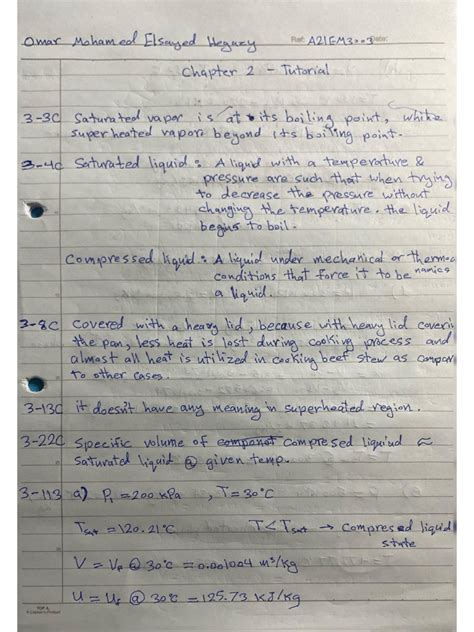 Omar Mohamed Elsayed Hegazy Ref: A21EM3003 Date:
Chapter 2 - Tutorial
3-3C Saturated vapor is at its boiling point, while
super heated vapors beyond its boiling point.
3-4C Saturated liquid: A liquid with a temperature &
pressure are such that when trying
to decrease the pressure without
changing the temperature. the liquid
begins to boil.
Compressed liquid: A liquid under mechanical or thermody
conditions that force it to be namics
a liquid.
3-8C Covered with a heavy lid, because with heavy lid coverin
the pan, less heat is lost during cooking process and
almost all heat is utilized in cooking beef stew as compar
to other cases.
3-13C it doesn't have any meaning in superheated region.
3-22C Specific volume of compresed liquiud ≈
saturated liquid @ given temp.
3-113 a) P₁ = 200 kPa , T = 30°C
Tsat = 120.21°C T < Tsat → compresed liquid
state
V = Vf @ 30°C = 0.001004 m³/kg
U = Uf @ 30°C = 125.73 kJ/kg